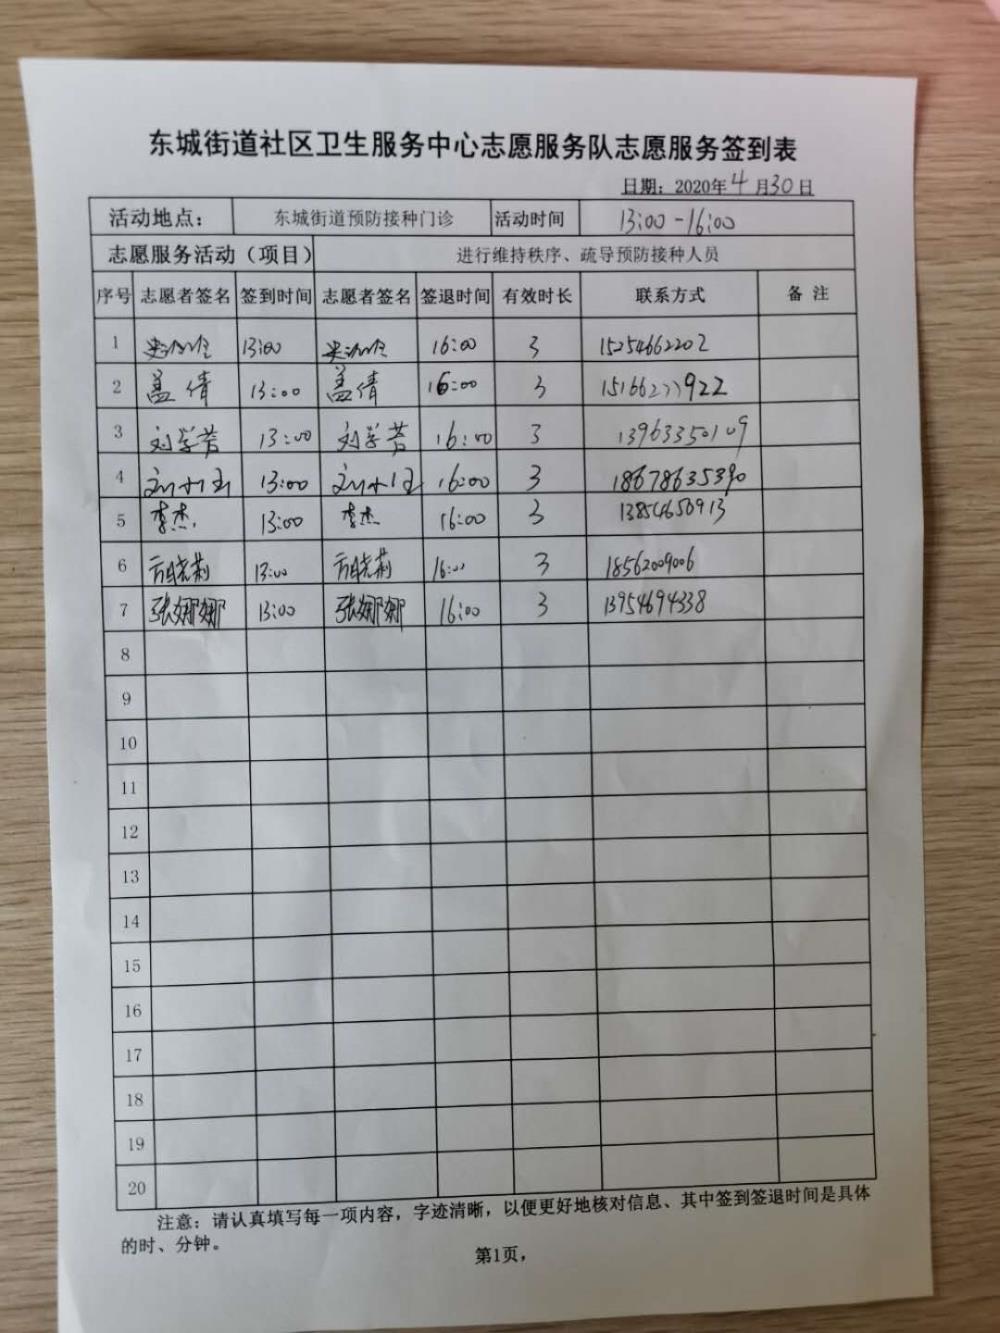 东城街道社区卫生服务中心志愿服务队志愿服务签到表
日期：2020年4月30日
活动地点： 东城街道预防接种门诊 活动时间 13:00-16:00
志愿服务活动（项目） 进行维持秩序、疏导预防接种人员
序号 志愿者签名 签到时间 志愿者签名 签退时间 有效时长 联系方式 备 注
1 13:00 16:00 3 15254662202
2 盖倩 13:00 盖倩 16:00 3 15166277922
3 刘学芳 13:00 刘学芳 16:00 3 13963350109
4 刘小玉 13:00 刘小玉 16:00 3
5 李杰 13:00 李杰 16:00 3 13854650913
6 方晓莉 13:00 方晓莉 16:00 3 18562009006
7 张娜娜 13:00 张娜娜 16:00 3 13954694338
8
9
10
11
12
13
14
15
16
17
18
19
20
注意：请认真填写每一项内容，字迹清晰，以便更好地核对信息、其中签到签退时间是具体
的时、分钟。
第1页，